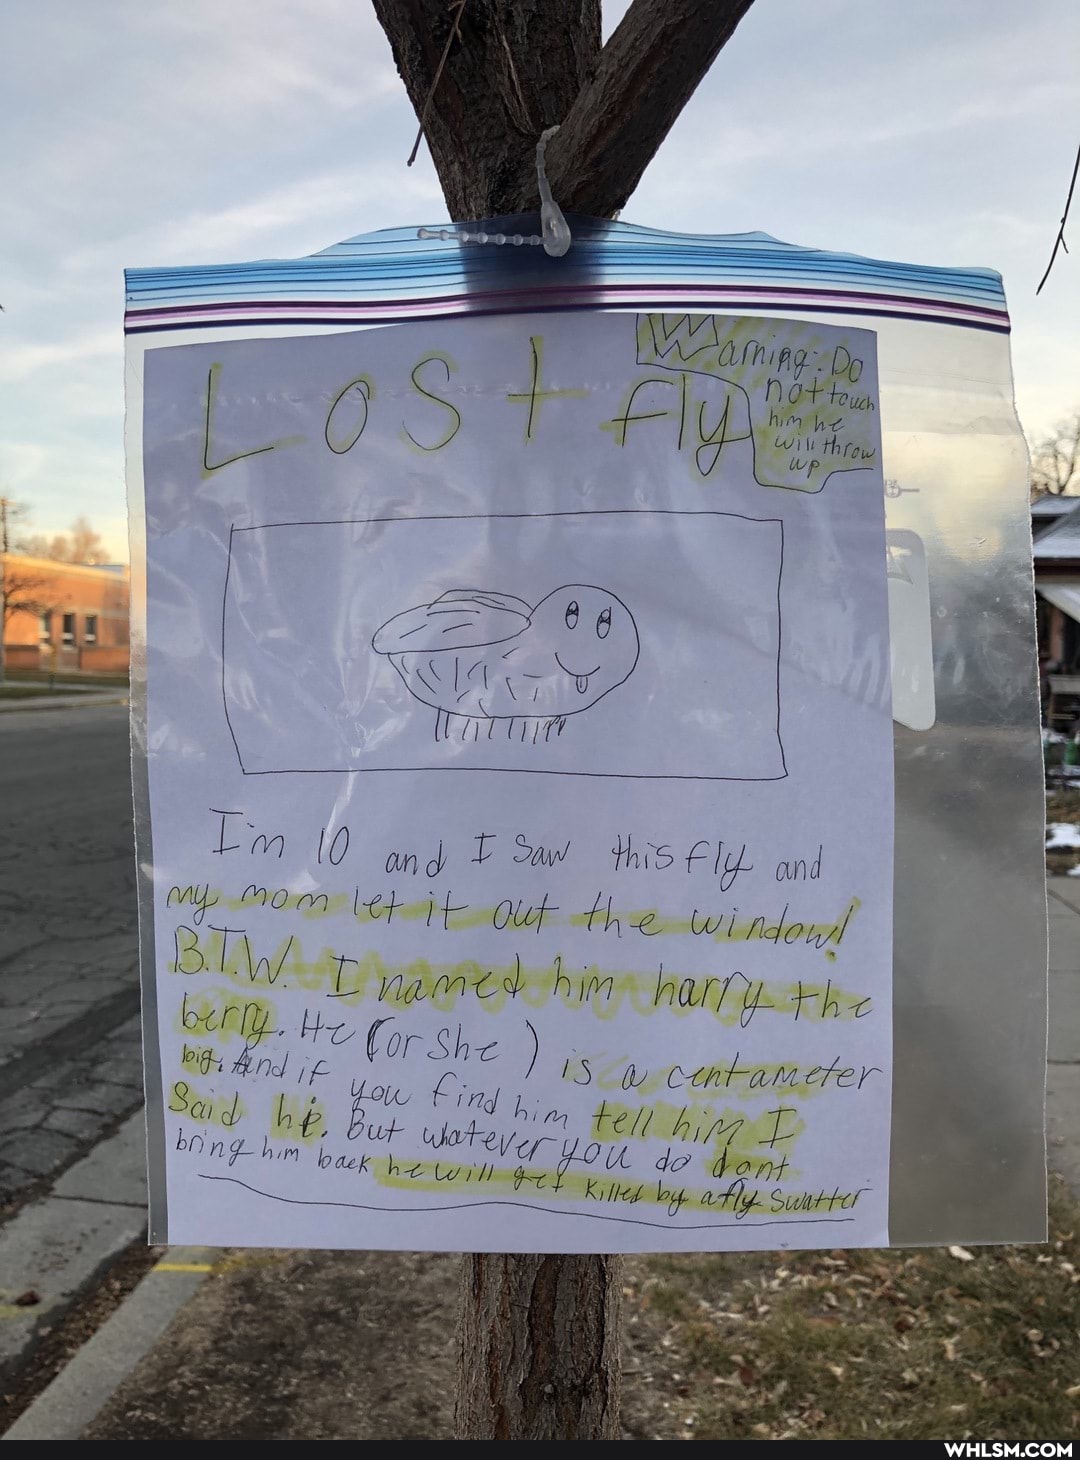 Lost fly
Warning: Do
not touch
him he
will throw
up
I'm 10 and I saw this fly and
my mom let it out the window!
B.T.W. I named him harry the
berry. He (or she) is a centameter
big. And if you find him tell him I
Said hi. But whatever you do dont
bring him back he will get killed by a fly swatter
WHLSM.COM